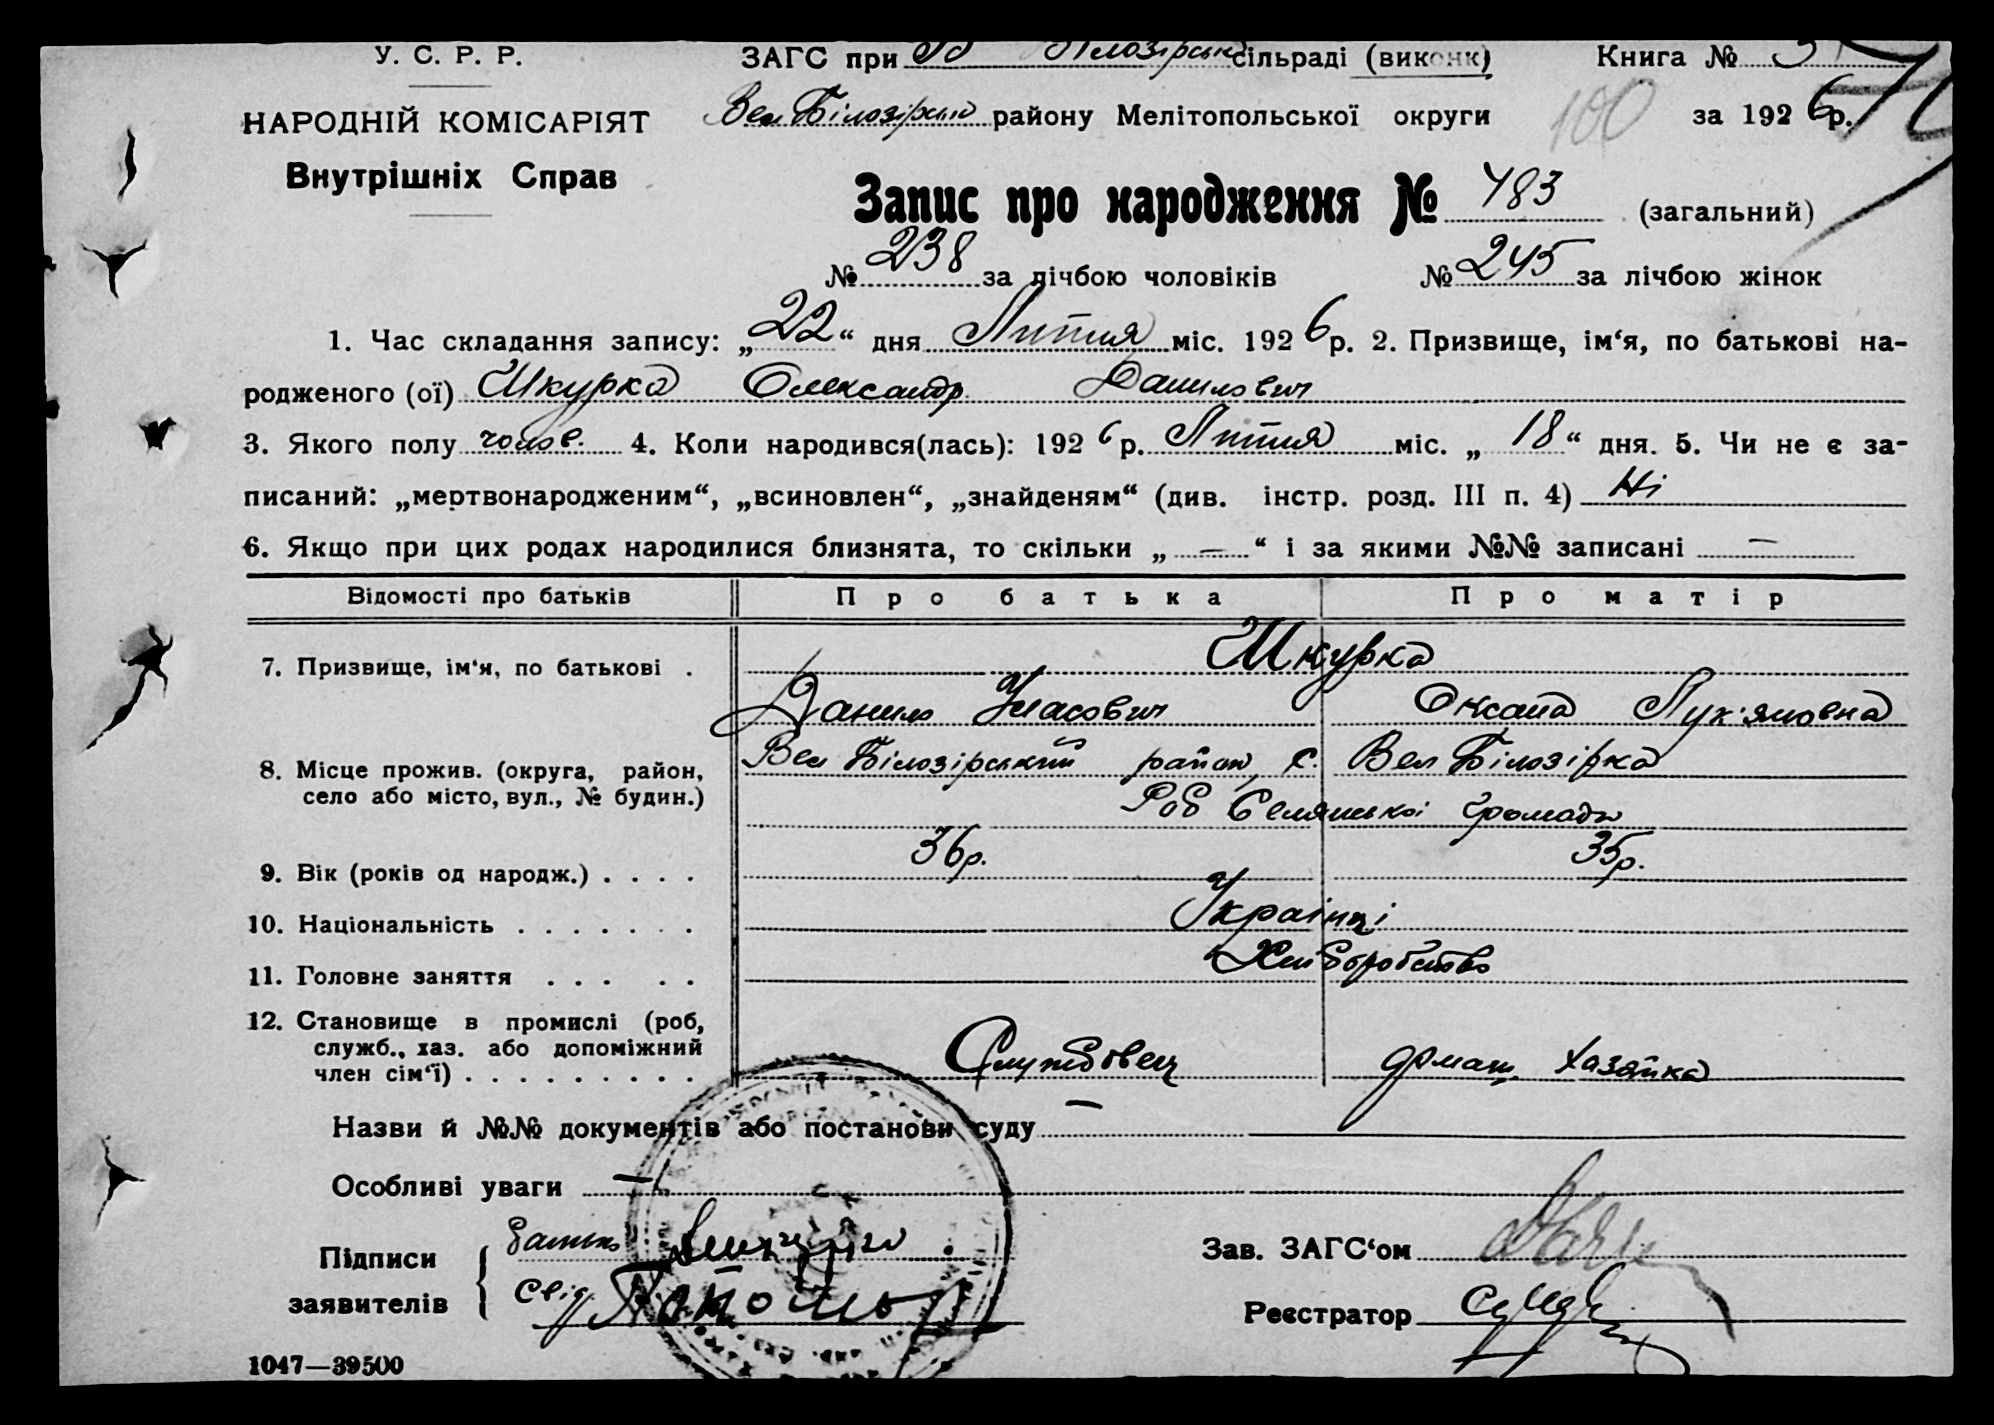 У. С. Р. Р.
ЗАГС при Білозірській сільраді (виконк)
Книга №
НАРОДНІЙ КОМІСАРІЯТ
Внутрішніх Справ
Вел Білозірсько району Мелітопольської округи
100
за 1926 р.
Запис про народження № 483 (загальний)
№ 238 за лічбою чоловіків № 245 за лічбою жінок
1. Час складання запису: „22“ дня Липня міс. 1926 р. 2. Призвище, ім‘я, по батькові на-
родженого (ої) Шкурка Олександр Данилович
3. Якого полу чолов. 4. Коли народився(лась): 1926 р. Липня міс. „18“ дня. 5. Чи не є за-
писаний: „мертвонародженим“, „всиновлен“, „знайденям“ (див. інстр. розд. III п. 4) Ні
6. Якщо при цих родах народилися близнята, то скільки „ — “ і за якими №№ записані —
Відомості про батьків Про батька Про матір
7. Призвище, ім‘я, по батькові . Шкурка
Данило Уласович Оксана Лук'яновна
8. Місце прожив. (округа, район,
село або місто, вул., № будин.)
Вел Білозірський район, с. Вел Білозірка
Роб Селянської громади
9. Вік (років од народж.) . . . . 36р. 35р.
10. Національність . . . . . . . Українці
11. Головне заняття . . . . . Хліборобство
12. Становище в промислі (роб,
служб., хаз. або допоміжний
член сім‘ї) . . . . . . . . . Службовець домаш. хазяйка
Назви й №№ документів або постанови суду —
Особливі уваги —
Підписи
заявителів
Батько
Свід
Зав. ЗАГС‘ом
Реєстратор
1047—39500